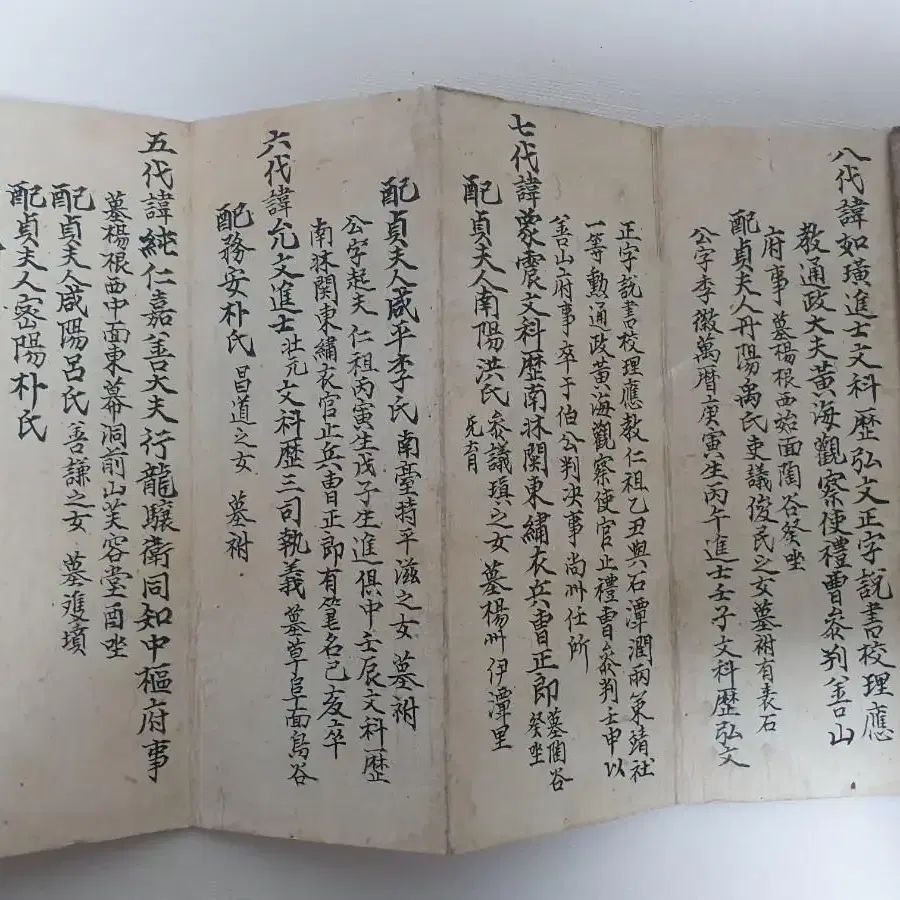 八代諱如璜進士文科歷弘文正字說書校理應
教通政大夫黃海觀察使禮曹叅判善山
府事墓楊根西始面陶谷癸坐
配貞夫人丹陽禹氏吏議俊民之女墓祔有表石
公字季徽萬曆庚寅生丙午進士壬子文科歷弘文
正字說書校理應教仁祖乙丑與石潭潤兩策靖社
一等勳通政黃海觀察使官止禮曹叅判壬申以
善山府事卒于伯公判决事尙州任所
七代諱蒙震文科歷南牀関東繡衣兵曹正郎墓陶谷
癸坐
配貞夫人南陽洪氏叅議瑱之女墓楊州伊潭里
先育
配貞夫人咸平李氏南臺持平滋之女墓祔
公字起夫仁祖丙寅生戊子生進俱中壬辰文科歷
南牀関東繡衣官止兵曹正郎有筆名己亥卒
六代諱允文進士壯元文科歷三司執義墓草阜面鳥谷
配務安朴氏昌道之女墓祔
五代諱純仁嘉善大夫行龍驤衛同知中樞府事
墓楊根西中面東幕洞前山芙容堂酉坐
配貞夫人咸陽呂氏善謙之女墓雙墳
配貞夫人密陽朴氏